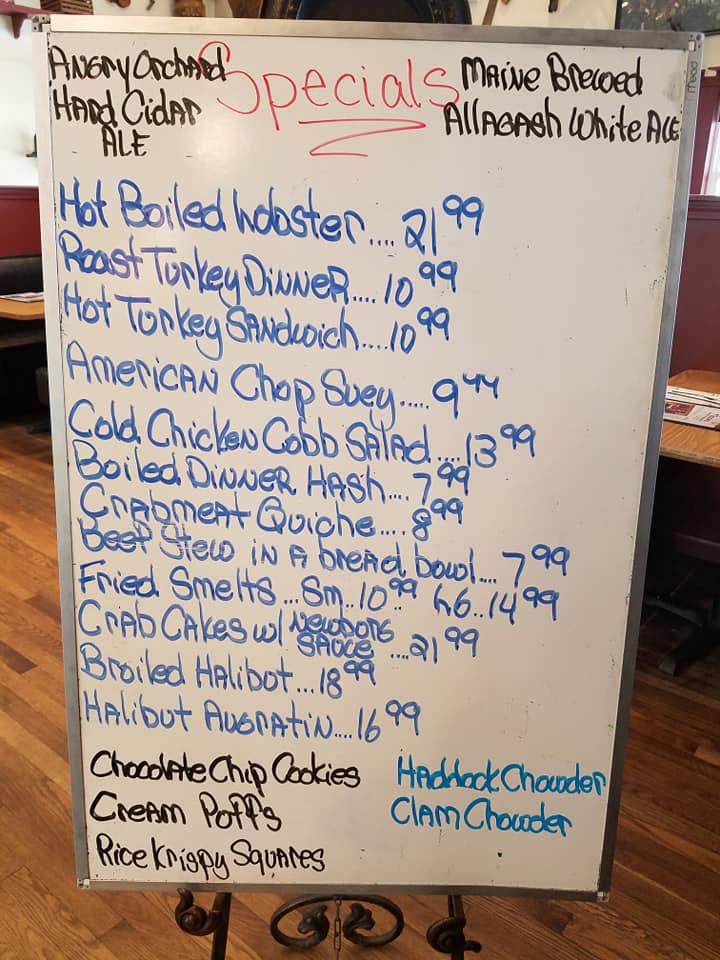 Specials
Angry Orchard
Hard Cidar
ALE
Maine Brewed
Allagash White ALE
Hot Boiled Lobster.... 21 99
Roast Turkey Dinner.... 10 99
Hot Turkey Sandwich....10 99
American Chop Suey..... 9 44
Cold Chicken Cobb Salad....13 99
Boiled Dinner Hash.... 7 99
Crabmeat Quiche.... 8 99
Beef Stew in a bread bowl.... 7 99
Fried Smelts ...Sm..10 99.. LG..14 99
Crab Cakes w/ Newborg
Sauce ....21 99
Broiled Halibut...18 99
Halibut Augratin....16 99
Chocolate Chip Cookies
Cream Poffs
Rice Krispy Squares
Haddock Chowder
Clam Chowder
mead